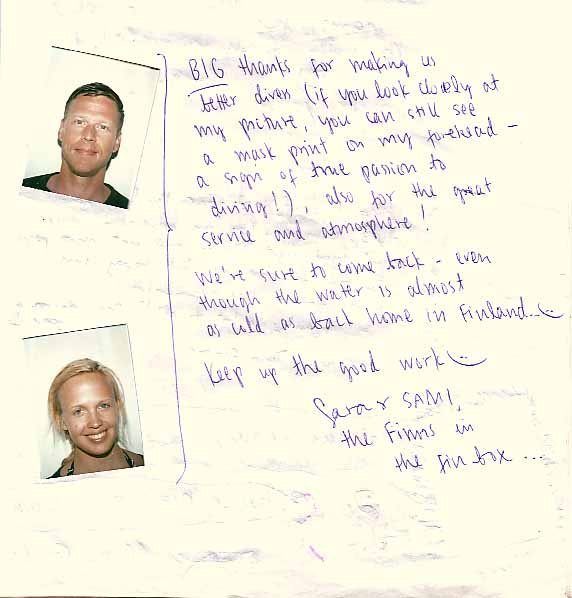 BIG thanks for making us
better divers (if you look closely at
my picture, you can still see
a mask print on my forehead –
a sign of true passion to
diving!), also for the great
service and atmosphere!
We're sure to come back – even
though the water is almost
as cold as back home in Finland...
Keep up the good work
Sara & SAMI,
the Finns in
the fin box ...